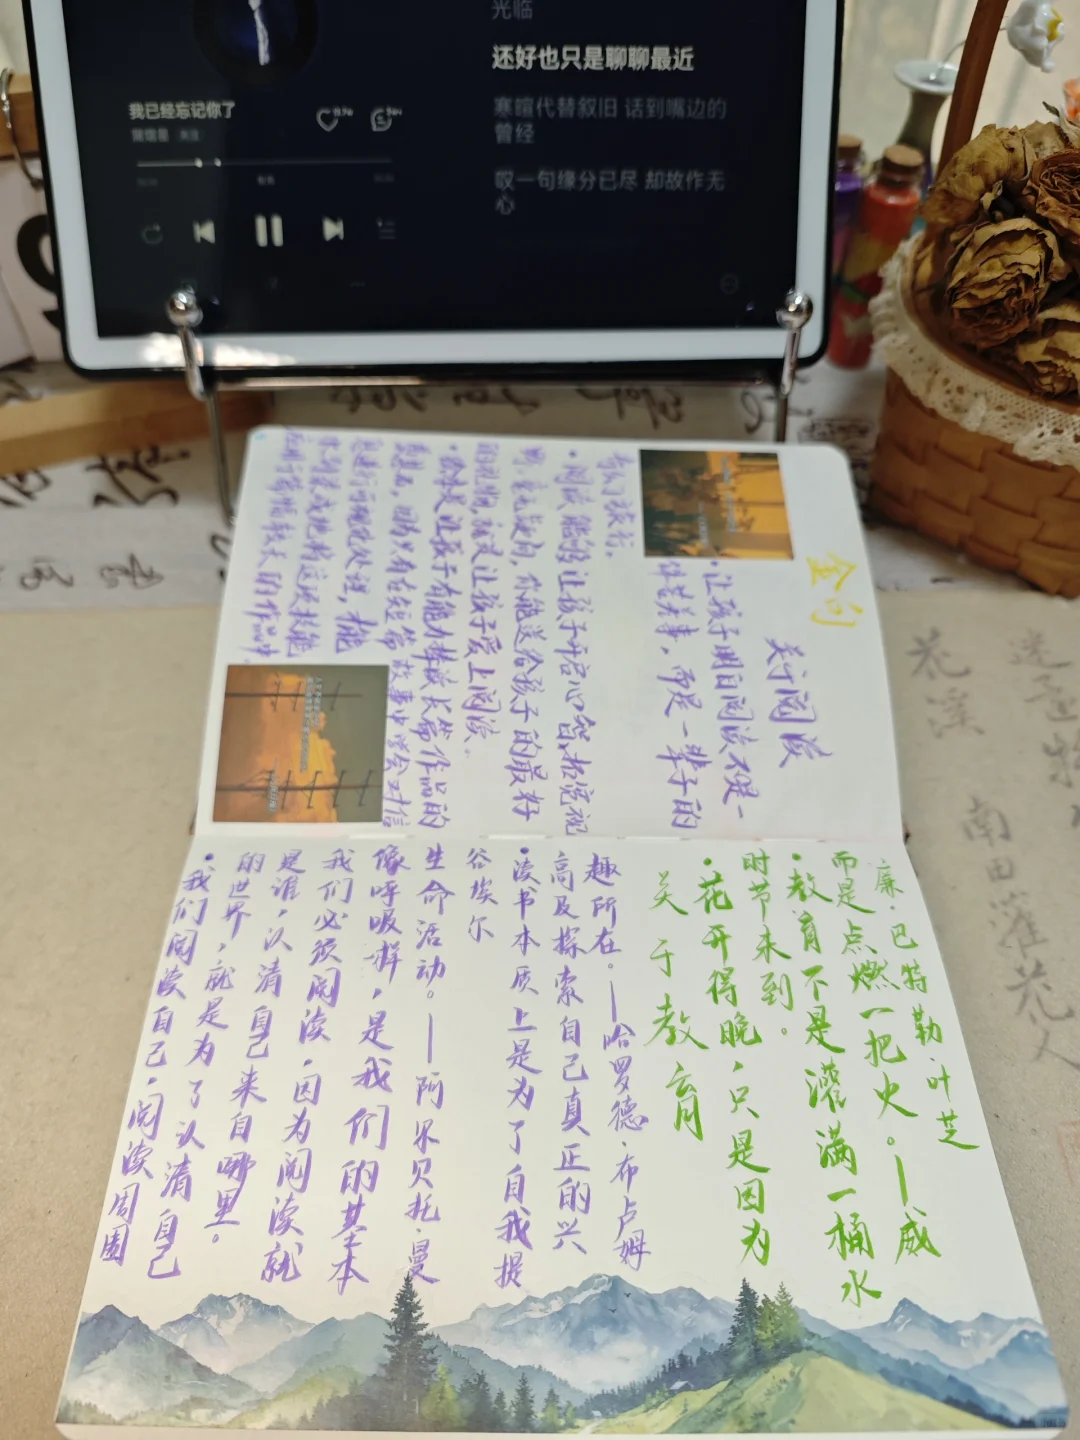 光临
还好也只是聊聊最近
寒暄代替叙旧 话到嘴边的
曾经
叹一句缘分已尽 却故作无
心
我已经忘记你了
金句
关于阅读
·让孩子明白阅读不是一
件苦差事，而是一辈子的
旅行。
·阅读能够让孩子开启心智,拓宽视
野,毫无疑问,你能送给孩子的最好
的礼物,就是让孩子爱上阅读.
让孩子有能力 长篇作品的
因为只有在短篇故事中学会对信
息进行可视化处理,才能
地将这项技能
应用于篇幅较长的作品中.
·我们阅读自己，阅读周围
的世界，就是为了认清自己
是谁，认清自己来自哪里。
我们必须阅读，因为阅读就
像呼吸一样，是我们的基本
生命活动。——阿尔贝托·曼
谷埃尔
·读书本质上是为了自我提
高及探索自己真正的兴
趣所在。——哈罗德·布卢姆
关于教育
·花开得晚，只是因为
时节未到。
·教育不是灌满一桶水
而是点燃一把火。——威
廉·巴特勒·叶芝
花溪
南田灌花人